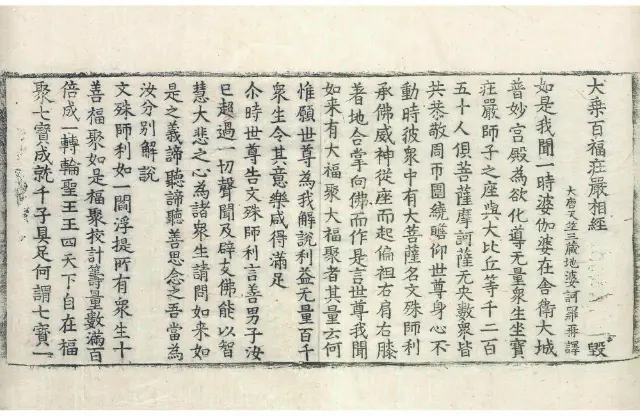 大乗百福莊嚴相經 毀
大唐天竺三藏地婆訶羅再譯
如是我聞一時婆伽婆在舍衛大城
普妙宮殿為欲化導无量衆生坐寶
莊嚴師子之座與大比丘等千二百
五十人俱菩薩摩訶薩无央數衆皆
共恭敬周帀圍繞瞻仰世尊身心不
動時彼衆中有大菩薩名文殊師利
承佛威神從座而起偏袒右肩右膝
著地合掌向佛而作是言世尊我聞
如来有大福聚大福聚者其量云何
惟願世尊為我解說利益无量百千
衆生令其意樂咸得滿足
尒時世尊告文殊師利言善男子汝
已超過一切聲聞及辟支佛能以智
慧大悲之心為諸衆生請問如来如
是之義諦聽諦聽善思念之吾當為
汝分別解說
文殊師利如一閻浮提所有衆生十
善福聚如是福聚校計籌量數滿百
倍成一轉輪聖王王四天下自在福
聚七寶成就千子具足何謂七寶一